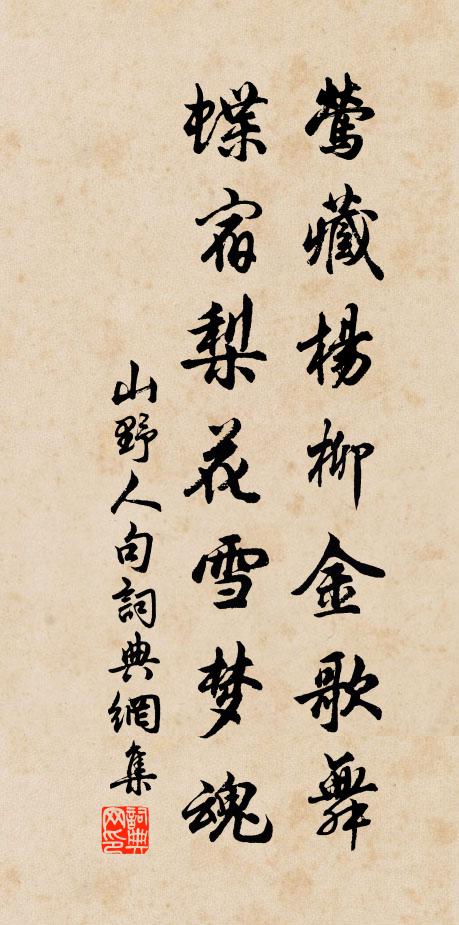 莺藏楊柳金歌舞
蝶宿梨花雪梦魂
山野人句詞典網集
詞典网印